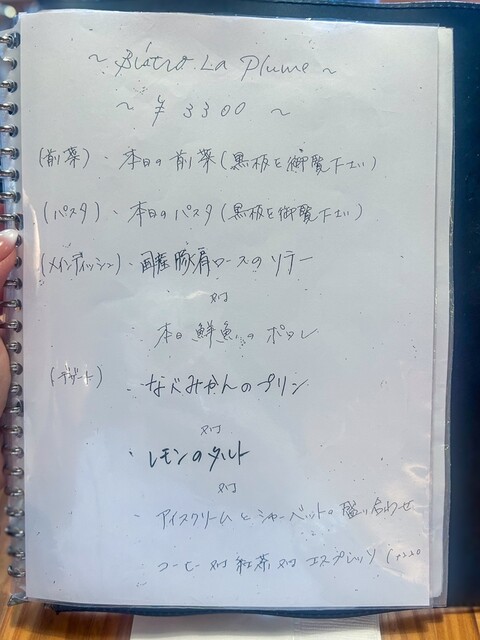 ~ Bistro La Plume ~
~ ¥ 3300 ~
(前菜)・本日の前菜(黒板を御覧下さい)
(パスタ)・本日のパスタ(黒板を御覧下さい)
(メインディッシュ)・国産豚肩ロースのソテー
又は
本日鮮魚のポワレ
(デザート)・なべみかんのプリン
又は
・レモンのタルト
又は
・アイスクリームとシャーベットの盛り合わせ
コーヒー又は紅茶又はエスプレッソ